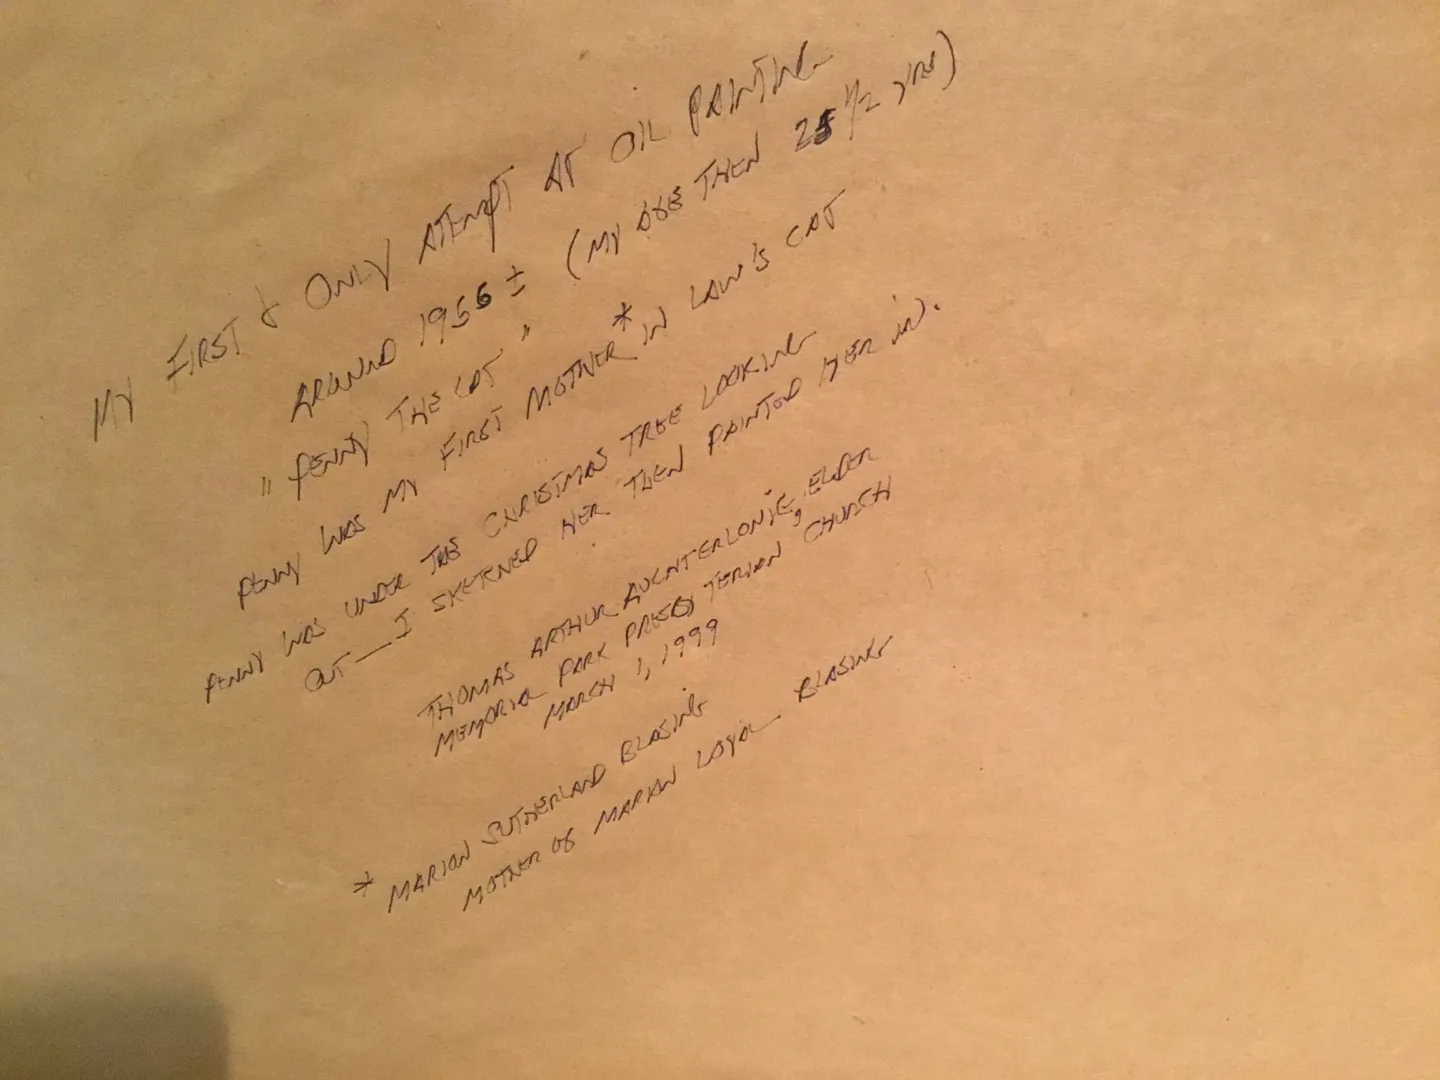 MY FIRST & ONLY ATEMPT AT OIL PAINTING
AROUND 1956 ± (MY AGE THEN 25 1/2 YRS)
"PENNY THE CAT"
PENNY WAS MY FIRST MOTHER* IN LAW'S CAT
PENNY WAS UNDER THE CHRISTMAS TREE LOOKING
OUT — I SKETCHED HER THEN PAINTED HER IN.
THOMAS ARTHUR AUCHTERLONIE, ELDER
MEMORIAL PARK PRESBYTERIAN CHURCH
MARCH 1, 1999
* MARION SUTHERLAND BLASING
MOTHER OF MARIAN LOYAL BLASING